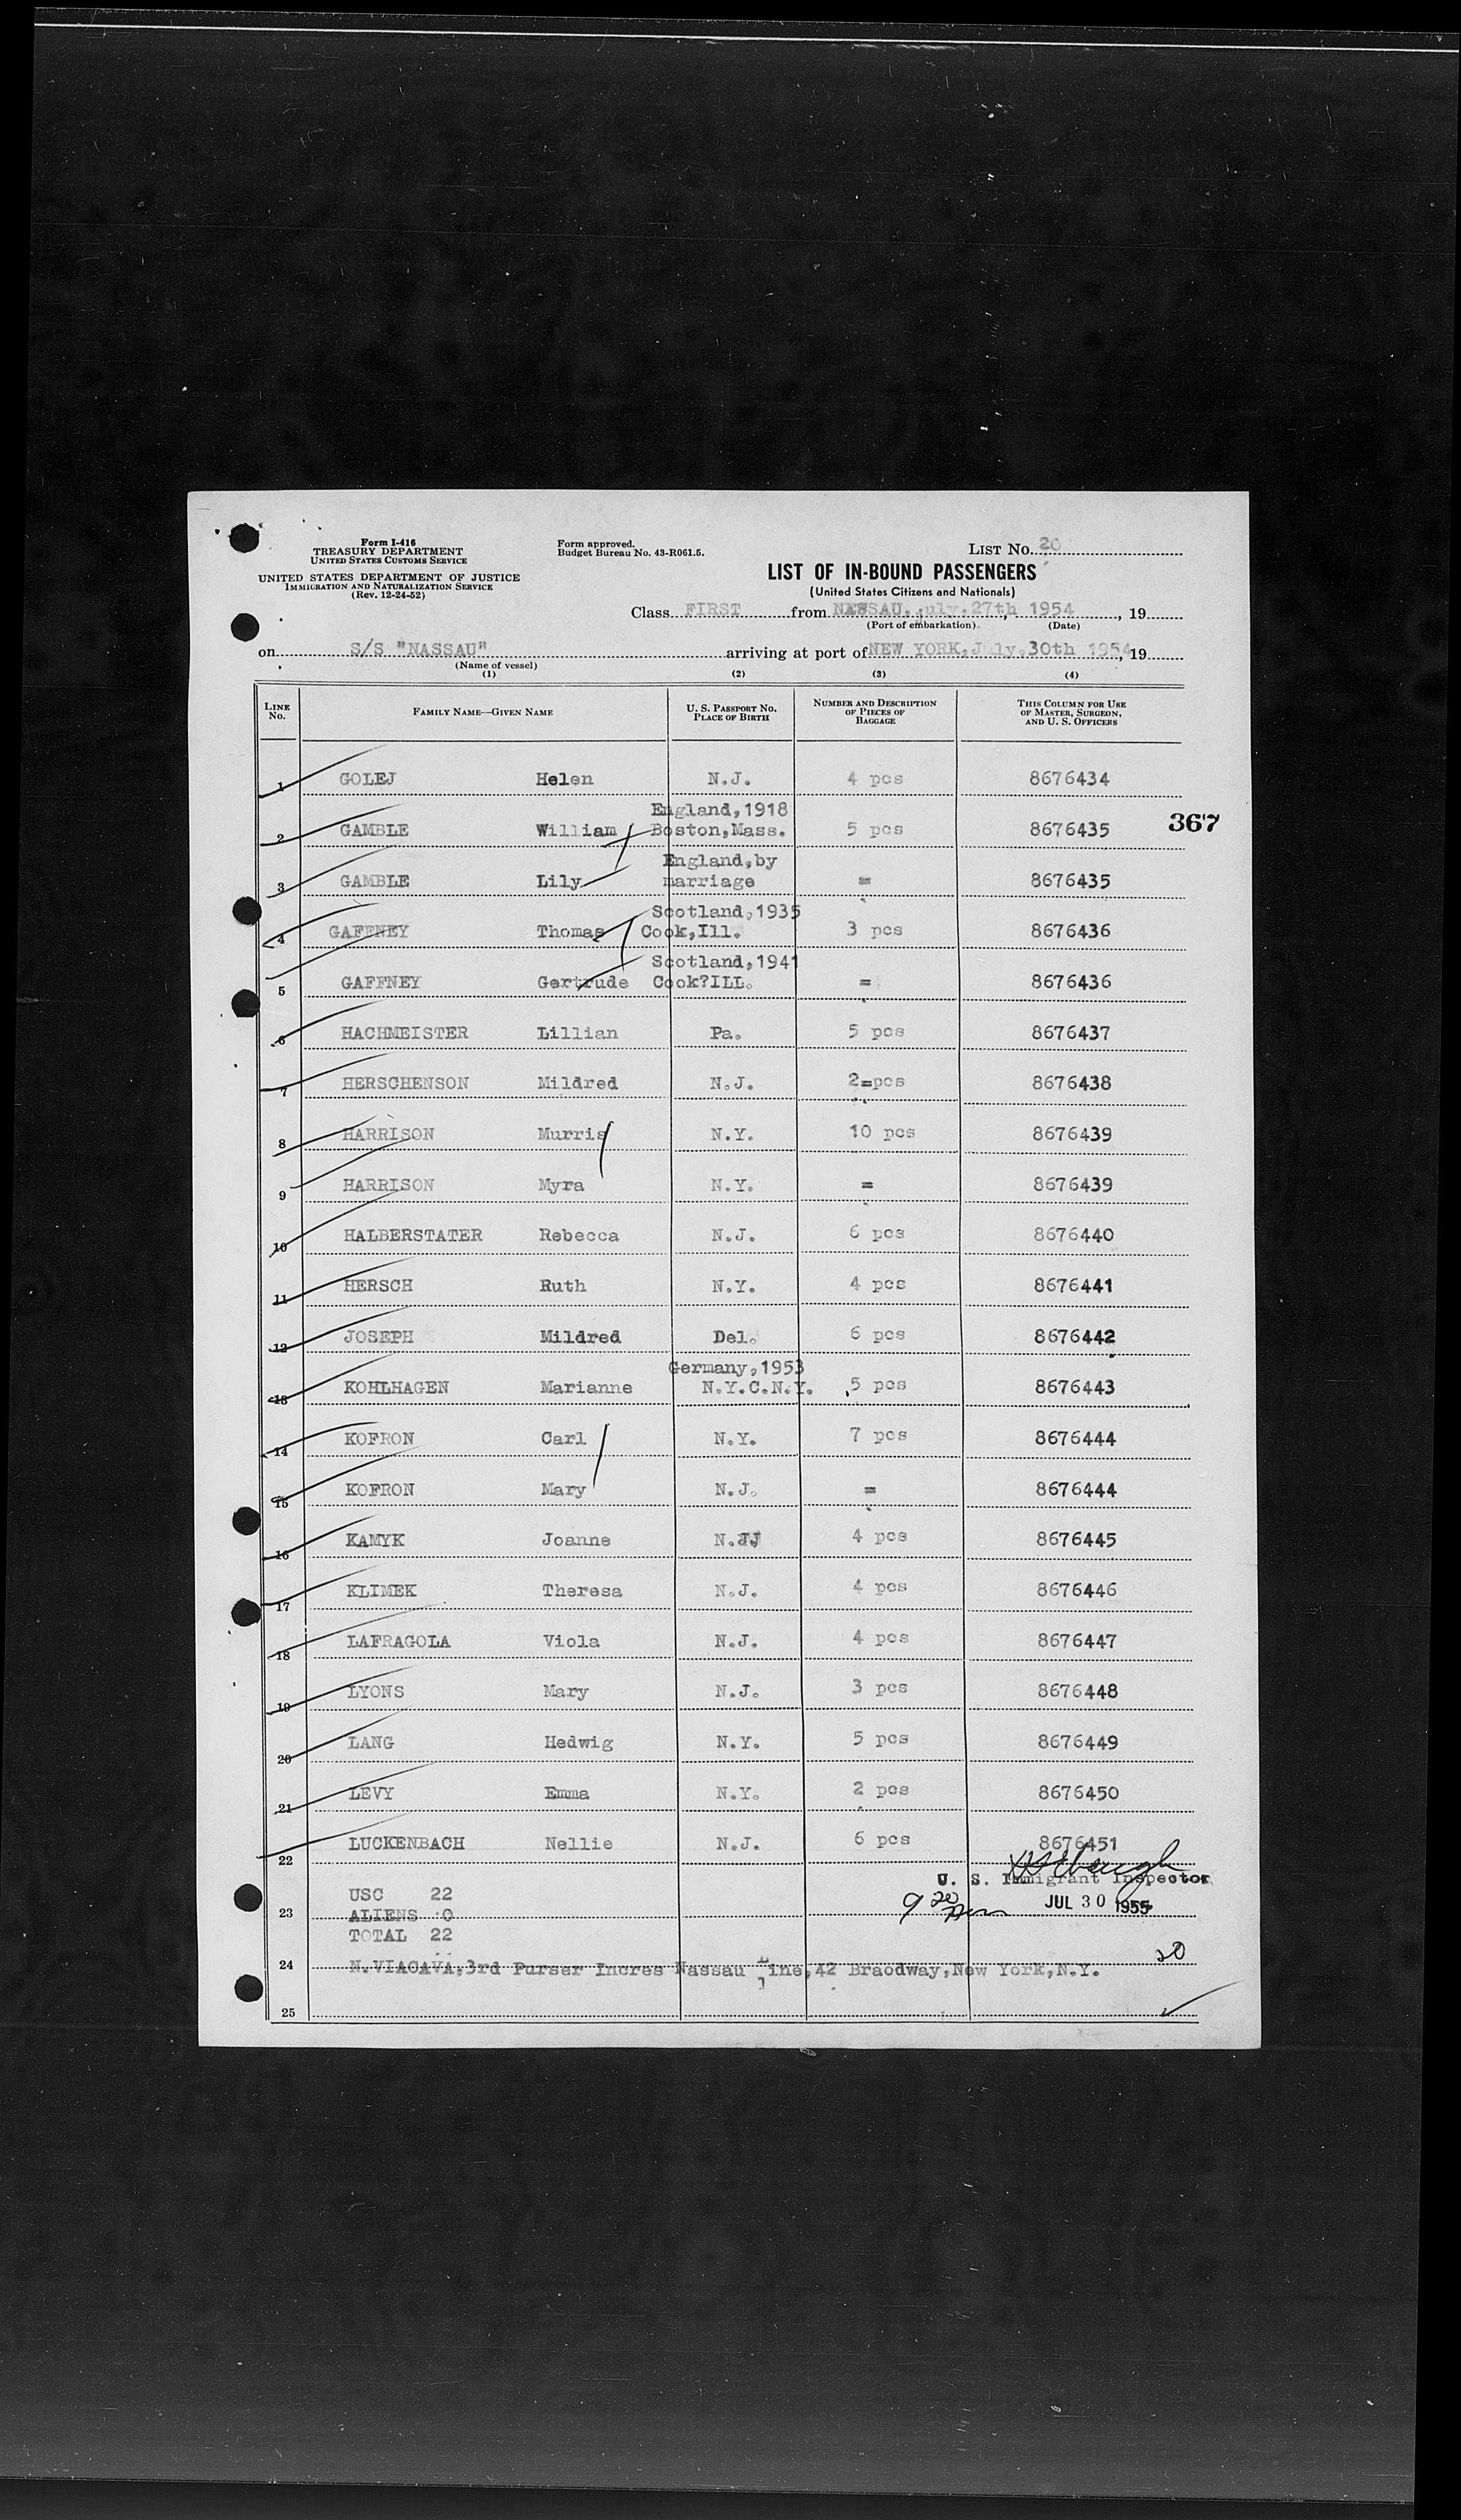 Form I-416
TREASURY DEPARTMENT
UNITED STATES CUSTOMS SERVICE
UNITED STATES DEPARTMENT OF JUSTICE
IMMIGRATION AND NATURALIZATION SERVICE
(Rev. 12-24-52)
Form approved.
Budget Bureau No. 43-R061.5.
LIST No. 20
LIST OF IN-BOUND PASSENGERS
(United States Citizens and Nationals)
Class FIRST from NASSAU, july.27th 1954, 19
(Port of embarkation) (Date)
on S/S "NASSAU" arriving at port of NEW YORK, July,30th 1954, 19
(Name of vessel)
(1) (2) (3) (4)
LINE No. FAMILY NAME—GIVEN NAME U. S. PASSPORT NO. PLACE OF BIRTH NUMBER AND DESCRIPTION OF PIECES OF BAGGAGE THIS COLUMN FOR USE OF MASTER, SURGEON, AND U. S. OFFICERS
1 GOLEJ Helen N.J. 4 pcs 8676434
England,1918
2 GAMBLE William Boston,Mass. 5 pcs 8676435 367
England,by
3 GAMBLE Lily marriage = 8676435
Scotland,1935
4 GAFFNEY Thomas Cook,Ill. 3 pcs 8676436
Scotland,1941
5 GAFFNEY Gertrude Cook?ILL. = 8676436
6 HACHMEISTER Lillian Pa. 5 pcs 8676437
7 HERSCHENSON Mildred N.J. 2=pcs 8676438
8 HARRISON Murris N.Y. 10 pcs 8676439
9 HARRISON Myra N.Y. = 8676439
10 HALBERSTATER Rebecca N.J. 6 pcs 8676440
11 HERSCH Ruth N.Y. 4 pcs 8676441
12 JOSEPH Mildred Del. 6 pcs 8676442
Germany,1953
13 KOHLHAGEN Marianne N.Y.C.N.Y. 5 pcs 8676443
14 KOFRON Carl N.Y. 7 pcs 8676444
15 KOFRON Mary N.J. = 8676444
16 KAMYK Joanne N.JJ 4 pcs 8676445
17 KLIMEK Theresa N.J. 4 pcs 8676446
18 LAFRAGOLA Viola N.J. 4 pcs 8676447
19 LYONS Mary N.J. 3 pcs 8676448
20 LANG Hedwig N.Y. 5 pcs 8676449
21 LEVY Emma N.Y. 2 pcs 8676450
22 LUCKENBACH Nellie N.J. 6 pcs 8676451
U. S. Immigrant Inspector
USC 22
23 ALIENS 0 9 20 JUL 30 1955
TOTAL 22
20
24 N.VIACAVA,3rd Purser Incres Nassau Line,42 Braodway,New York,N.Y.
25